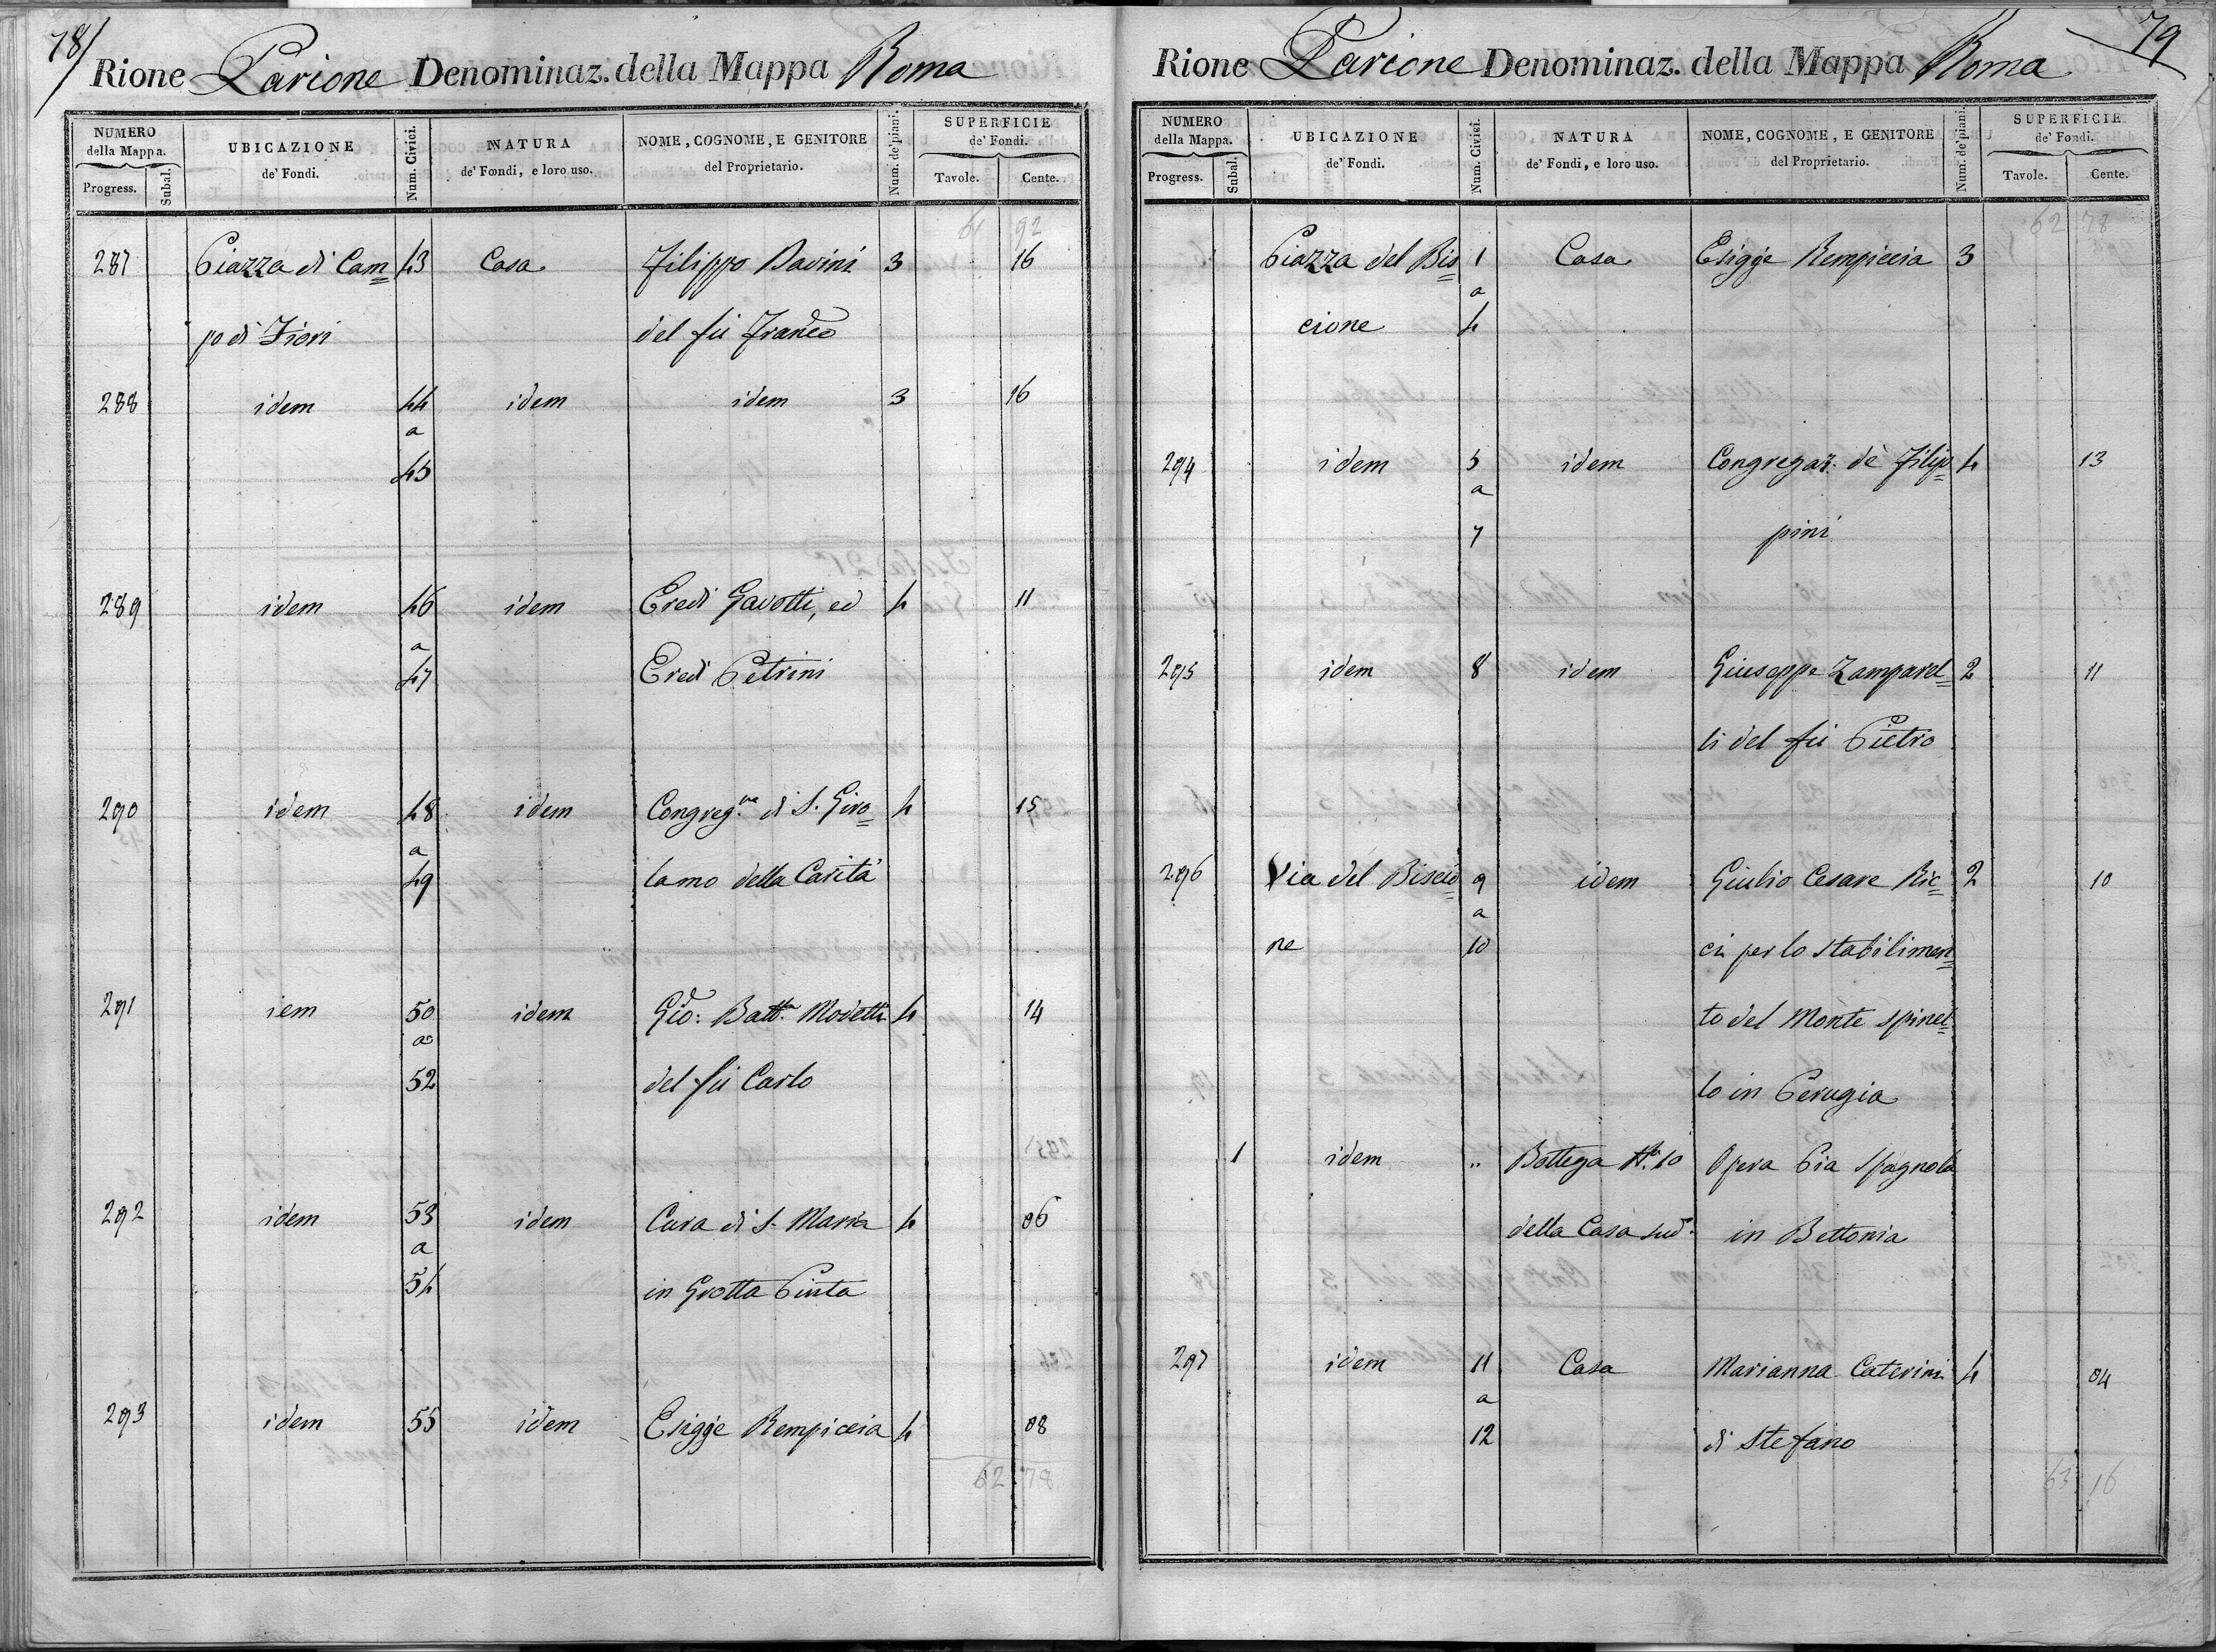 78/
Rione Parione Denominaz. della Mappa Roma
NUMERO della Mappa. Progress. Subal. UBICAZIONE de' Fondi. Num. Civici. NATURA de' Fondi, e loro uso. NOME, COGNOME, E GENITORE del Proprietario. Num. de' piani. SUPERFICIE de' Fondi. Tavole. Cente.
61 92
287 Piazza di Cam= 43 Casa Filippo Bavini 3 16
po di Fiori del fù Franco
288 idem 44 idem idem 3 16
a
45
289 idem 46 idem Eredi Gavotti, ed 4 11
a
47 Eredi Petrini
290 idem 48 idem Congreg.ne di S. Giro= 4 15
a
49 lamo della Carità
291 iem 50 idem Gio: Batt.a Modetti 4 14
a
52 del fù Carlo
292 idem 53 idem Cura di S. Maria 4 06
a
54 in Grotta Pinta
293 idem 55 idem Esigge Rempiccia 4 08
62 78
79
Rione Parione Denominaz. della Mappa Roma
NUMERO della Mappa. Progress. Subal. UBICAZIONE de' Fondi. Num. Civici. NATURA de' Fondi, e loro uso. NOME, COGNOME, E GENITORE del Proprietario. Num. de' piani. SUPERFICIE de' Fondi. Tavole. Cente.
62 78
Piazza del Bis= 1 Casa Esigge Rempiccia 3
a
cione 4
294 idem 5 idem Congregaz. de Filip= 4 13
a
7 pini
295 idem 8 idem Giuseppe Zamparel= 2 11
li del fù Pietro
296 Via del Biscio= 9 idem Giulio Cesare Ric= 2 10
a
ne 10 ci per lo stabilimen=
to del Monte Spinel=
lo in Perugia
1 idem " Bottega N.o 10 Opera Pia Spagnola
della Casa sud.a in Bettonia
297 idem 11 Casa Marianna Caterini 4 04
a
12 di Stefano
63 16